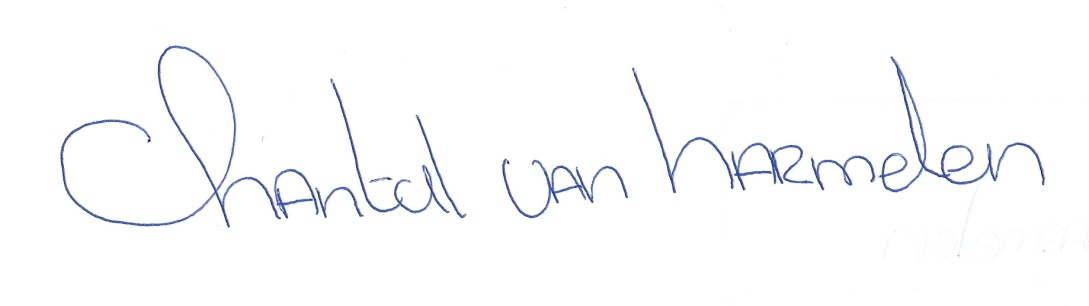 Chantal van Harmelen